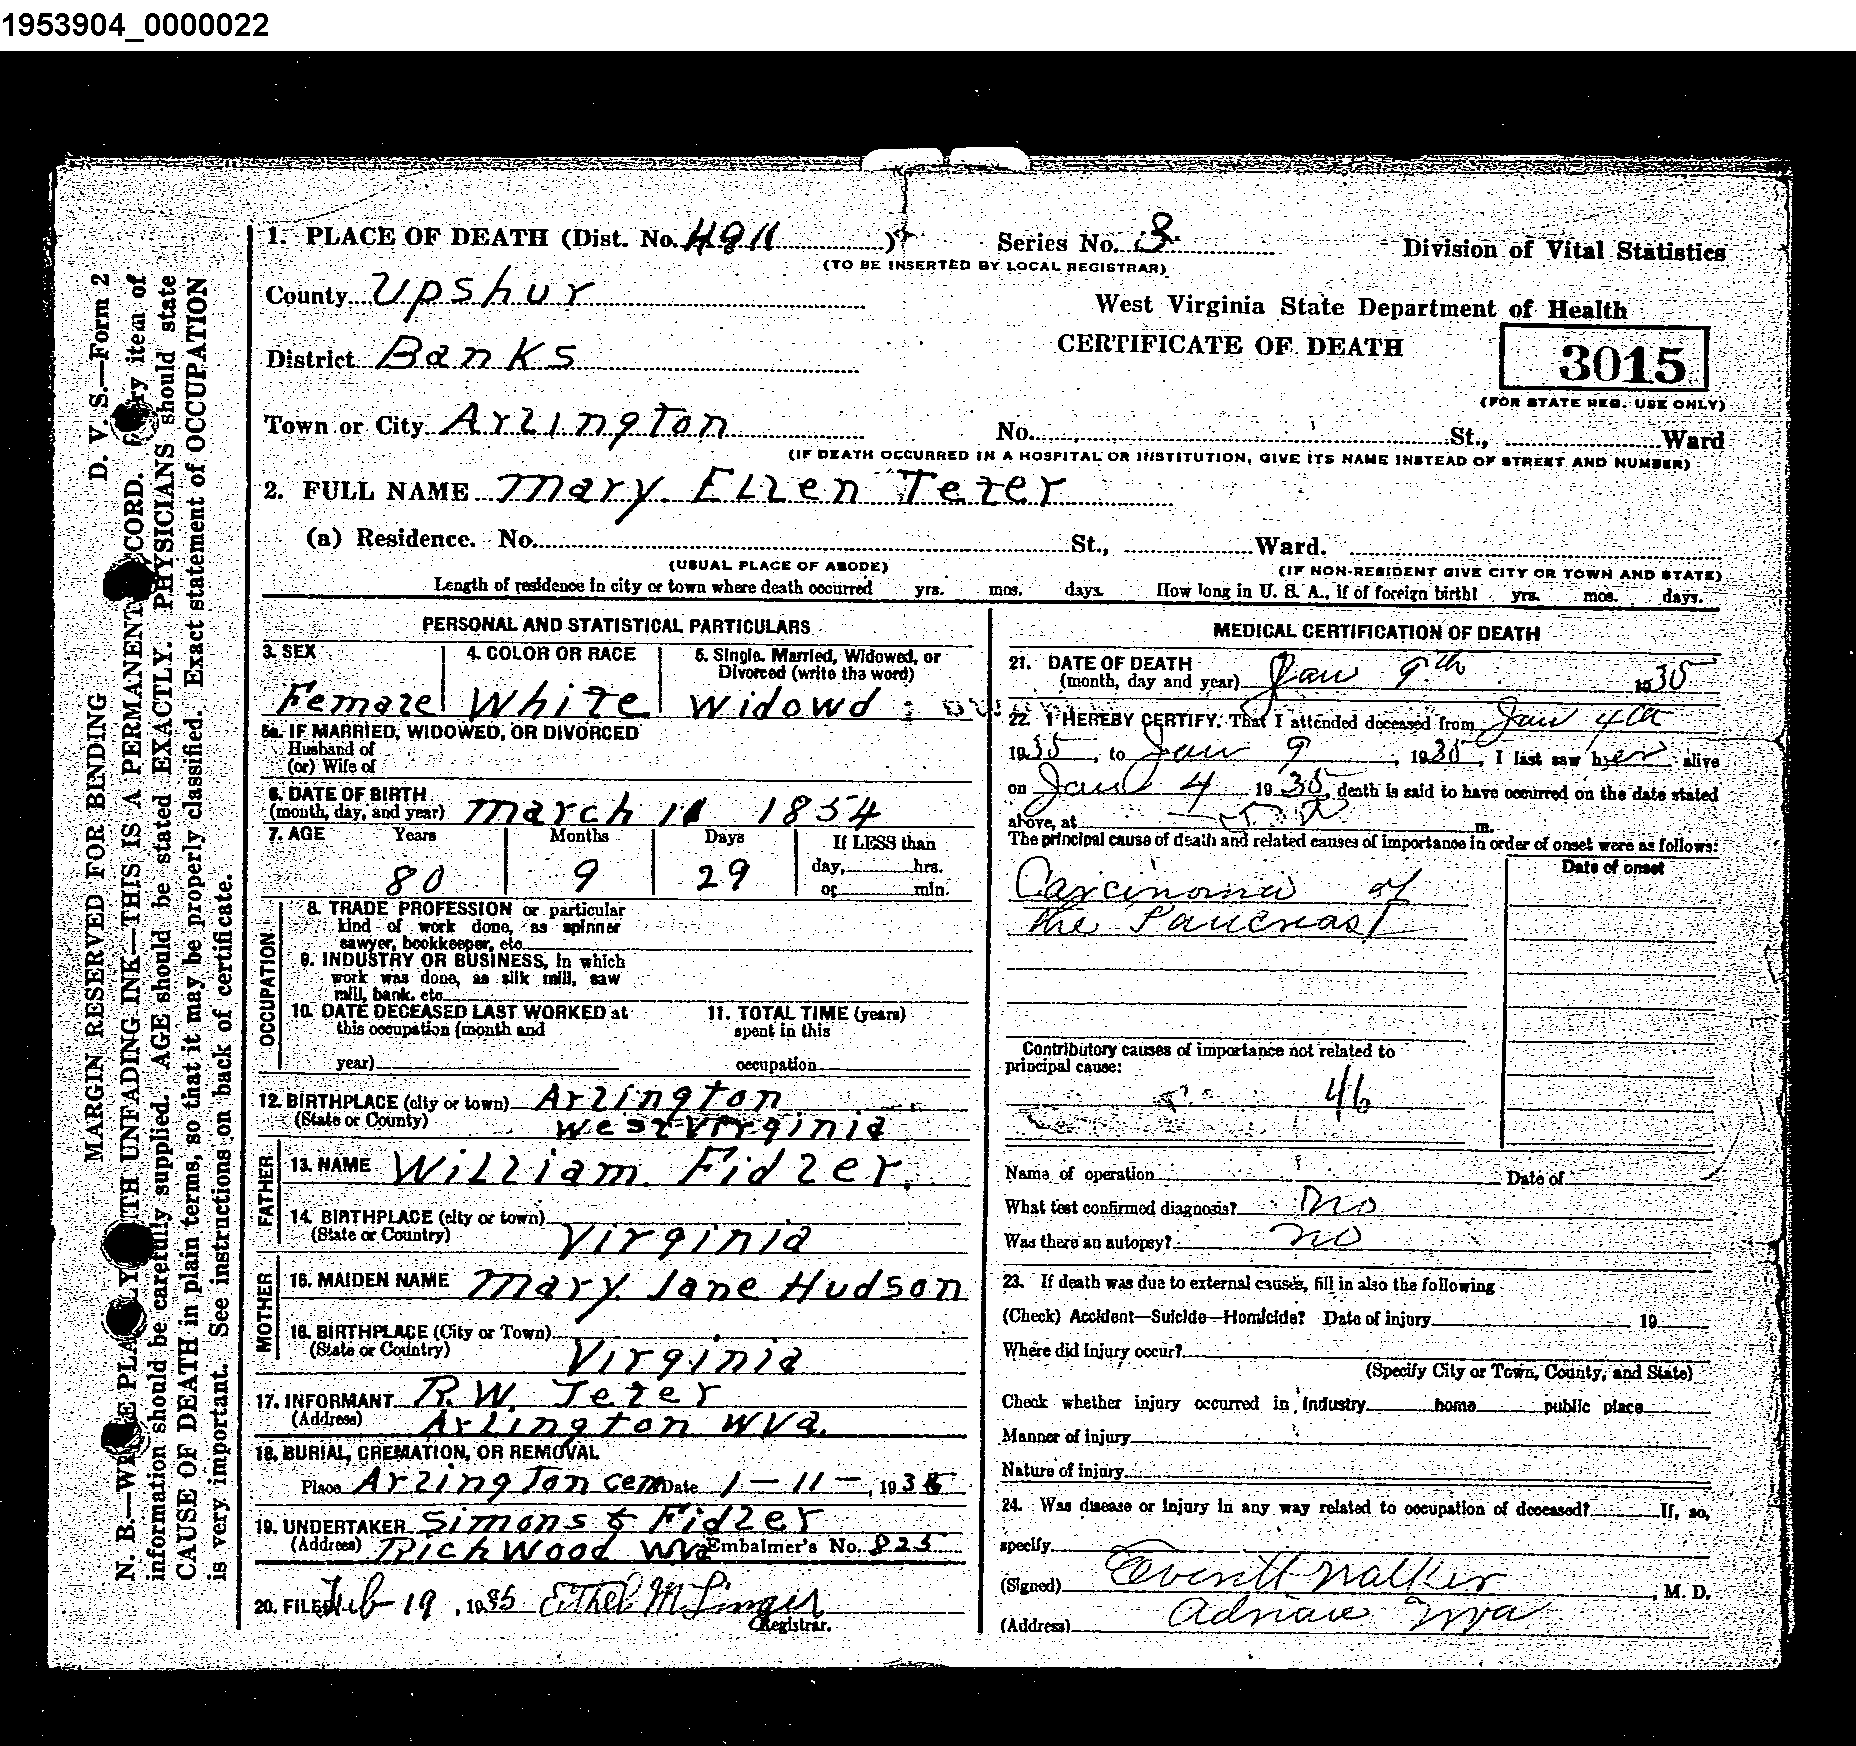 1953904_0000022
1. PLACE OF DEATH (Dist. No. 4911 ) Series No. 3 Division of Vital Statistics
(TO BE INSERTED BY LOCAL REGISTRAR)
County Upshur
West Virginia State Department of Health
CERTIFICATE OF DEATH
3015
(FOR STATE REG. USE ONLY)
District Banks
Town or City Arlington No. St., Ward
(IF DEATH OCCURRED IN A HOSPITAL OR INSTITUTION, GIVE ITS NAME INSTEAD OF STREET AND NUMBER)
2. FULL NAME Mary Ellen Teter
(a) Residence. No. St., Ward.
(USUAL PLACE OF ABODE) (IF NON-RESIDENT GIVE CITY OR TOWN AND STATE)
Length of residence in city or town where death occurred yrs. mos. days. How long in U. S. A., if of foreign birth? yrs. mos. days.
PERSONAL AND STATISTICAL PARTICULARS
3. SEX
Female
4. COLOR OR RACE
White
5. Single, Married, Widowed, or
Divorced (write the word)
Widowd
5a. IF MARRIED, WIDOWED, OR DIVORCED
Husband of
(or) Wife of
6. DATE OF BIRTH
(month, day, and year) March 11 1854
7. AGE Years Months Days If LESS than
80 9 29 day, hrs.
or min.
OCCUPATION
8. TRADE PROFESSION or particular
kind of work done, as spinner
sawyer, bookkeeper, etc.
9. INDUSTRY OR BUSINESS, in which
work was done, as silk mill, saw
mill, bank, etc.
10. DATE DECEASED LAST WORKED at
this occupation (month and
year)
11. TOTAL TIME (years)
spent in this
occupation
12. BIRTHPLACE (city or town) Arlington
(State or County) West Virginia
FATHER
13. NAME William Fidler.
14. BIRTHPLACE (city or town)
(State or Country) Virginia
MOTHER
15. MAIDEN NAME Mary Jane Hudson
16. BIRTHPLACE (City or Town)
(State or Country) Virginia
17. INFORMANT R.W. Teter
(Address) Arlington WVa.
18. BURIAL, CREMATION, OR REMOVAL
Place Arlington cem Date 1-11-, 1935
19. UNDERTAKER Simons & Fidler
(Address) Richwood WVa Embalmer's No. 825
20. FILED Feb 19, 1935 Ethel M Linger
Registrar.
MEDICAL CERTIFICATION OF DEATH
21. DATE OF DEATH
(month, day and year) Jan 9th 1935
22. I HEREBY CERTIFY. That I attended deceased from Jan 4th
1935, to Jan 9, 1935, I last saw her alive
on Jan 4 1935, death is said to have occurred on the date stated
above, at m.
The principal cause of death and related causes of importance in order of onset were as follows:
Date of onset
Carcinoma of
the Pancreas
Contributory causes of importance not related to
principal cause:
46
Name of operation Date of
What test confirmed diagnosis? no
Was there an autopsy? no
23. If death was due to external causes, fill in also the following
(Check) Accident—Suicide—Homicide? Date of injury 19
Where did injury occur?
(Specify City or Town, County, and State)
Check whether injury occurred in industry home public place
Manner of injury
Nature of injury
24. Was disease or injury in any way related to occupation of deceased? If, so,
specify
(Signed) Everett Walker, M. D.
(Address) Adrian Wva
D. V. S.—Form 2
MARGIN RESERVED FOR BINDING
N. B.—WRITE PLAINLY WITH UNFADING INK—THIS IS A PERMANENT RECORD. Every item of
information should be carefully supplied. AGE should be stated EXACTLY. PHYSICIANS should state
CAUSE OF DEATH in plain terms, so that it may be properly classified. Exact statement of OCCUPATION
is very important. See instructions on back of certificate.